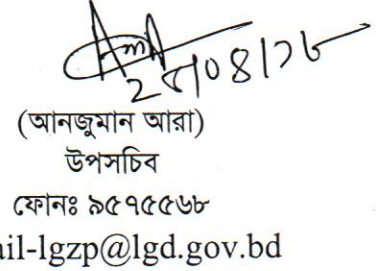 (আনজুমান আরা)
উপসচিব
ফোনঃ ৯৫৭৫৫৬৮
ail-lgzp@lgd.gov.bd